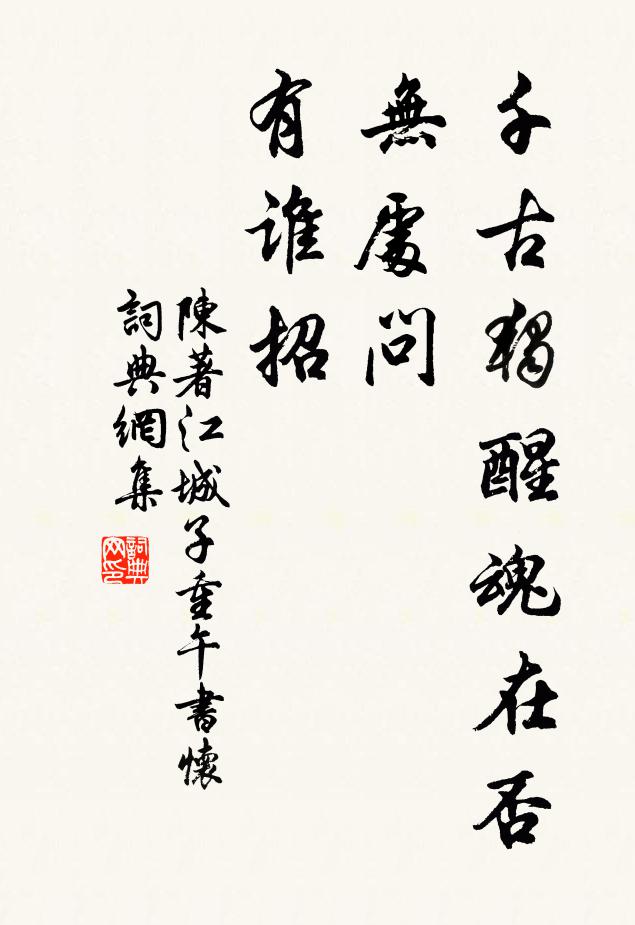 千古獨醒魂在否
無處問
有誰招
陳著江城子重午書懷
詞典網集
詞典网印